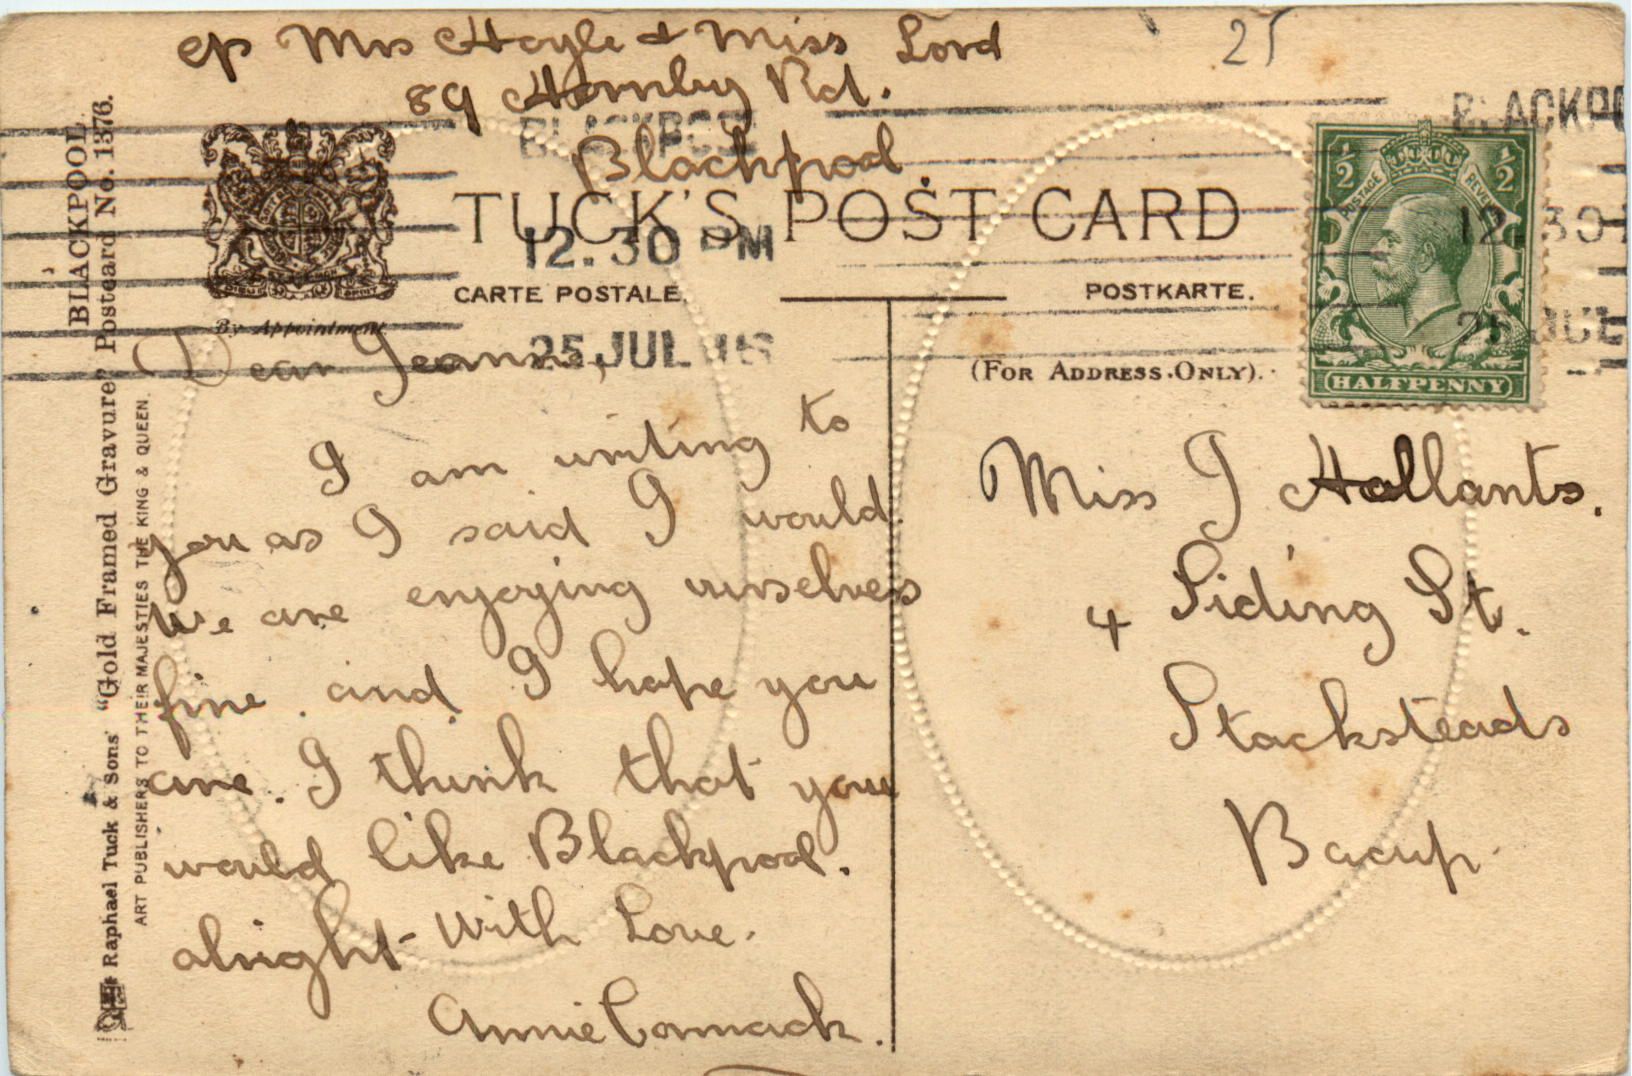 c/o Mrs Hoyle & Miss Lord
89 Hornby Rd.
Blackpool
25
BLACKPOOL
12.30 PM
25 JUL 16
BLACKPO
12.30
25 JUL
TUCK'S POST CARD
CARTE POSTALE.
POSTKARTE.
By Appointment
(FOR ADDRESS ONLY).
½ ½
POSTAGE REVENUE
HALFPENNY
BLACKPOOL.
Raphael Tuck & Sons' "Gold Framed Gravure" Postcard No. 1376.
ART PUBLISHERS TO THEIR MAJESTIES THE KING & QUEEN.
Dear
I am writing to
you as I said I would.
We are enjoying ourselves
fine. and I hope you
are. I think that you
would like Blackpool.
alright - With Love.
Annie Cormack.
Miss J Hollants.
4 Siding St.
Stacksteads
Bacup.